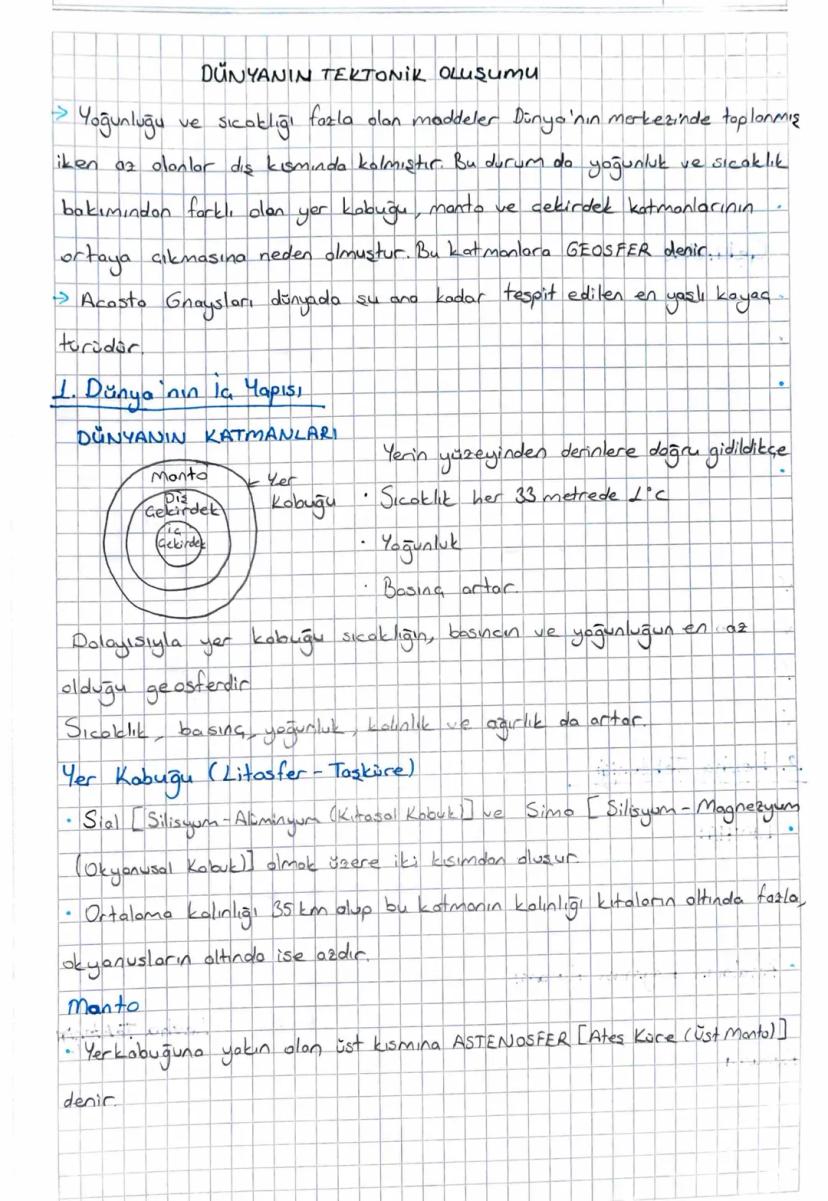 DÜNYANIN TEKTONİK OLUŞUMU
→ Yoğunluğu ve sıcaklığı fazla olan maddeler Dünya'nın merkezinde toplanmış
iken az olanlar dış kısmında kalmıştır. Bu durum da yoğunluk ve sıcaklık
bakımından farklı olan yer kabuğu, manto ve çekirdek katmanlarının
ortaya çıkmasına neden olmuştur. Bu katmanlara GEOSFER denir.
→ Acasta Gnaysları dünyada şu ana kadar tespit edilen en yaşlı kayaç
türüdür.
1. Dünya'nın İç Yapısı
DÜNYANIN KATMANLARI
Manto
Dış
Çekirdek
İç
Çekirdek
Yer
Kabuğu
Yerin yüzeyinden derinlere doğru gidildikçe
· Sıcaklık her 33 metrede 1°C
· Yoğunluk
· Basınç artar.
Dolayısıyla yer kabuğu sıcaklığın, basıncın ve yoğunluğun en az
olduğu geosferdir
Sıcaklık, basınç, yoğunluk, kalınlık ve ağırlık da artar.
Yer Kabuğu (Litosfer - Taşküre)
· Sial [Silisyum - Alüminyum (Kıtasal Kabuk)] ve Sima [Silisyum - Magnezyum
(Okyanusal Kabuk)] olmak üzere iki kısımdan oluşur.
· Ortalama kalınlığı 35 km olup bu katmanın kalınlığı kıtaların altında fazla,
okyanusların altında ise azdır.
Manto
· Yerkabuğuna yakın olan üst kısmına ASTENOSFER [Ateş Küre (Üst Manto)]
denir.